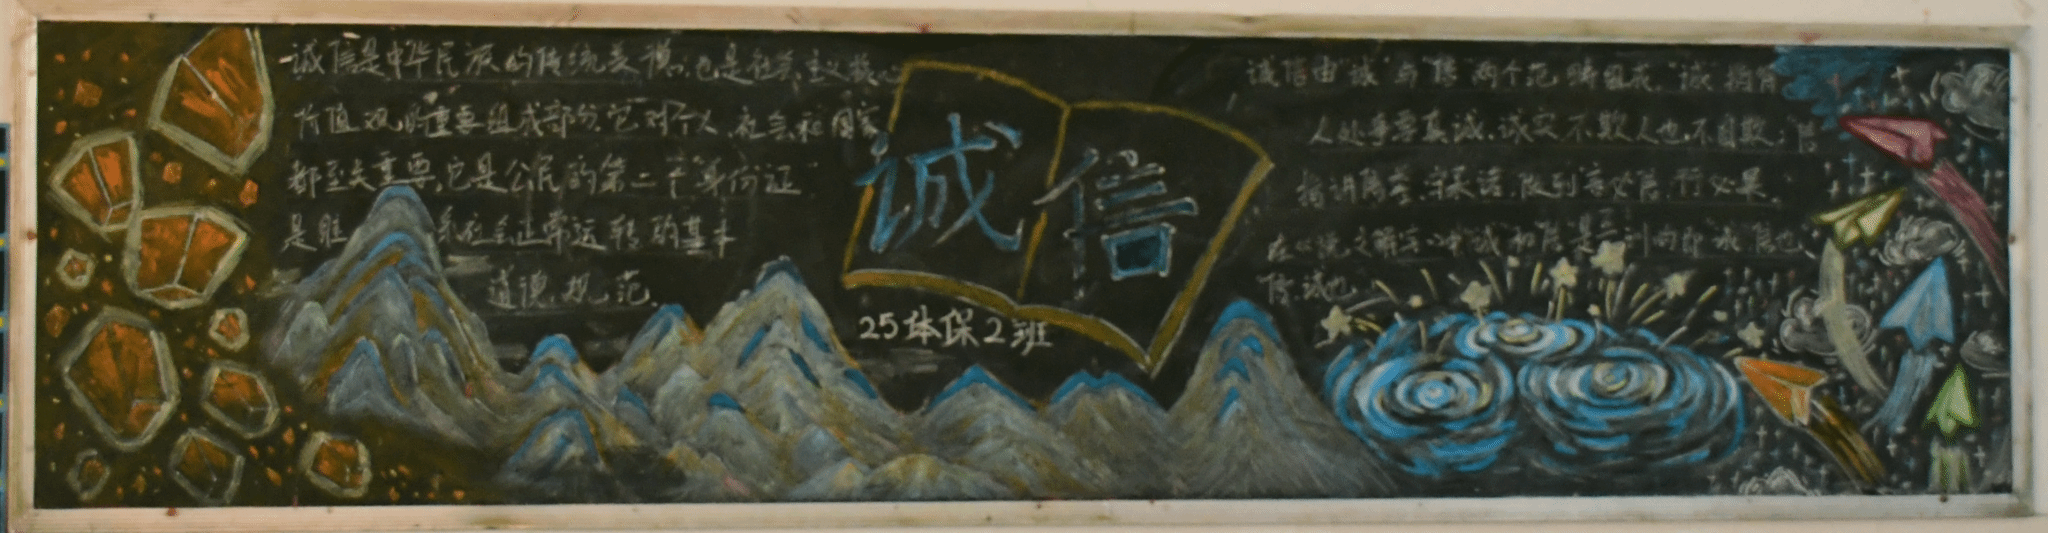 诚信是中华民族的传统美德，也是社会主义核心
价值观的重要组成部分，它对个人、社会和国家
都至关重要，它是公民的第二个"身份证"
是维系社会正常运转的基本
道德规范。
诚信
25体保2班
诚信由"诚"与"信"两个范畴组成，"诚"指
人处事要真诚、诚实，不欺人也不自欺；信
指讲信，守承诺，做到言必信，行必果。
在《说文解字》中"诚"和信是互训的即"诚，信也
信，诚也